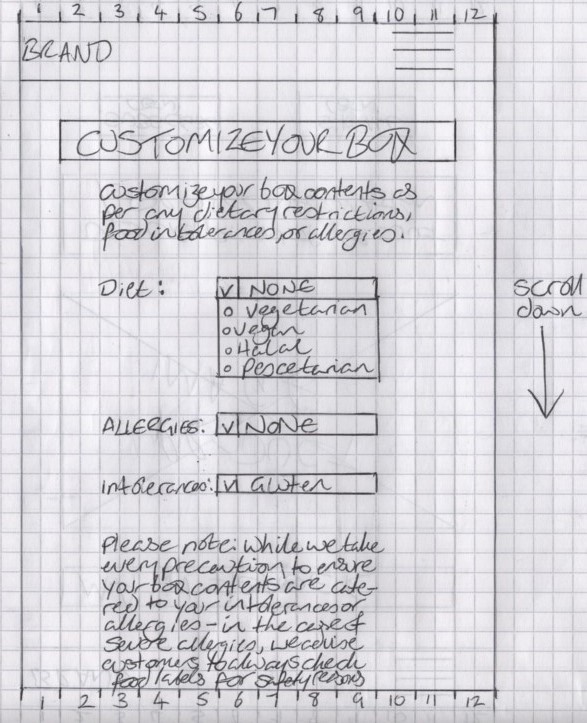 1 2 3 4 5 6 7 8 9 10 11 12
BRAND
CUSTOMIZE YOUR BOX
customize your box contents as
per any dietary restrictions,
food intolerances, or allergies.
Diet: v NONE
o Vegetarian
o Vegan
o Halal
o Pescetarian
scroll
down
ALLERGIES: v NONE
intolerances: v Gluten
Please note: While we take
every precaution to ensure
your box contents are cate-
red to your intolerances or
allergies - in the case of
severe allergies, we advise
customers to always check
food labels for safety reasons
1 2 3 4 5 6 7 8 9 10 11 12